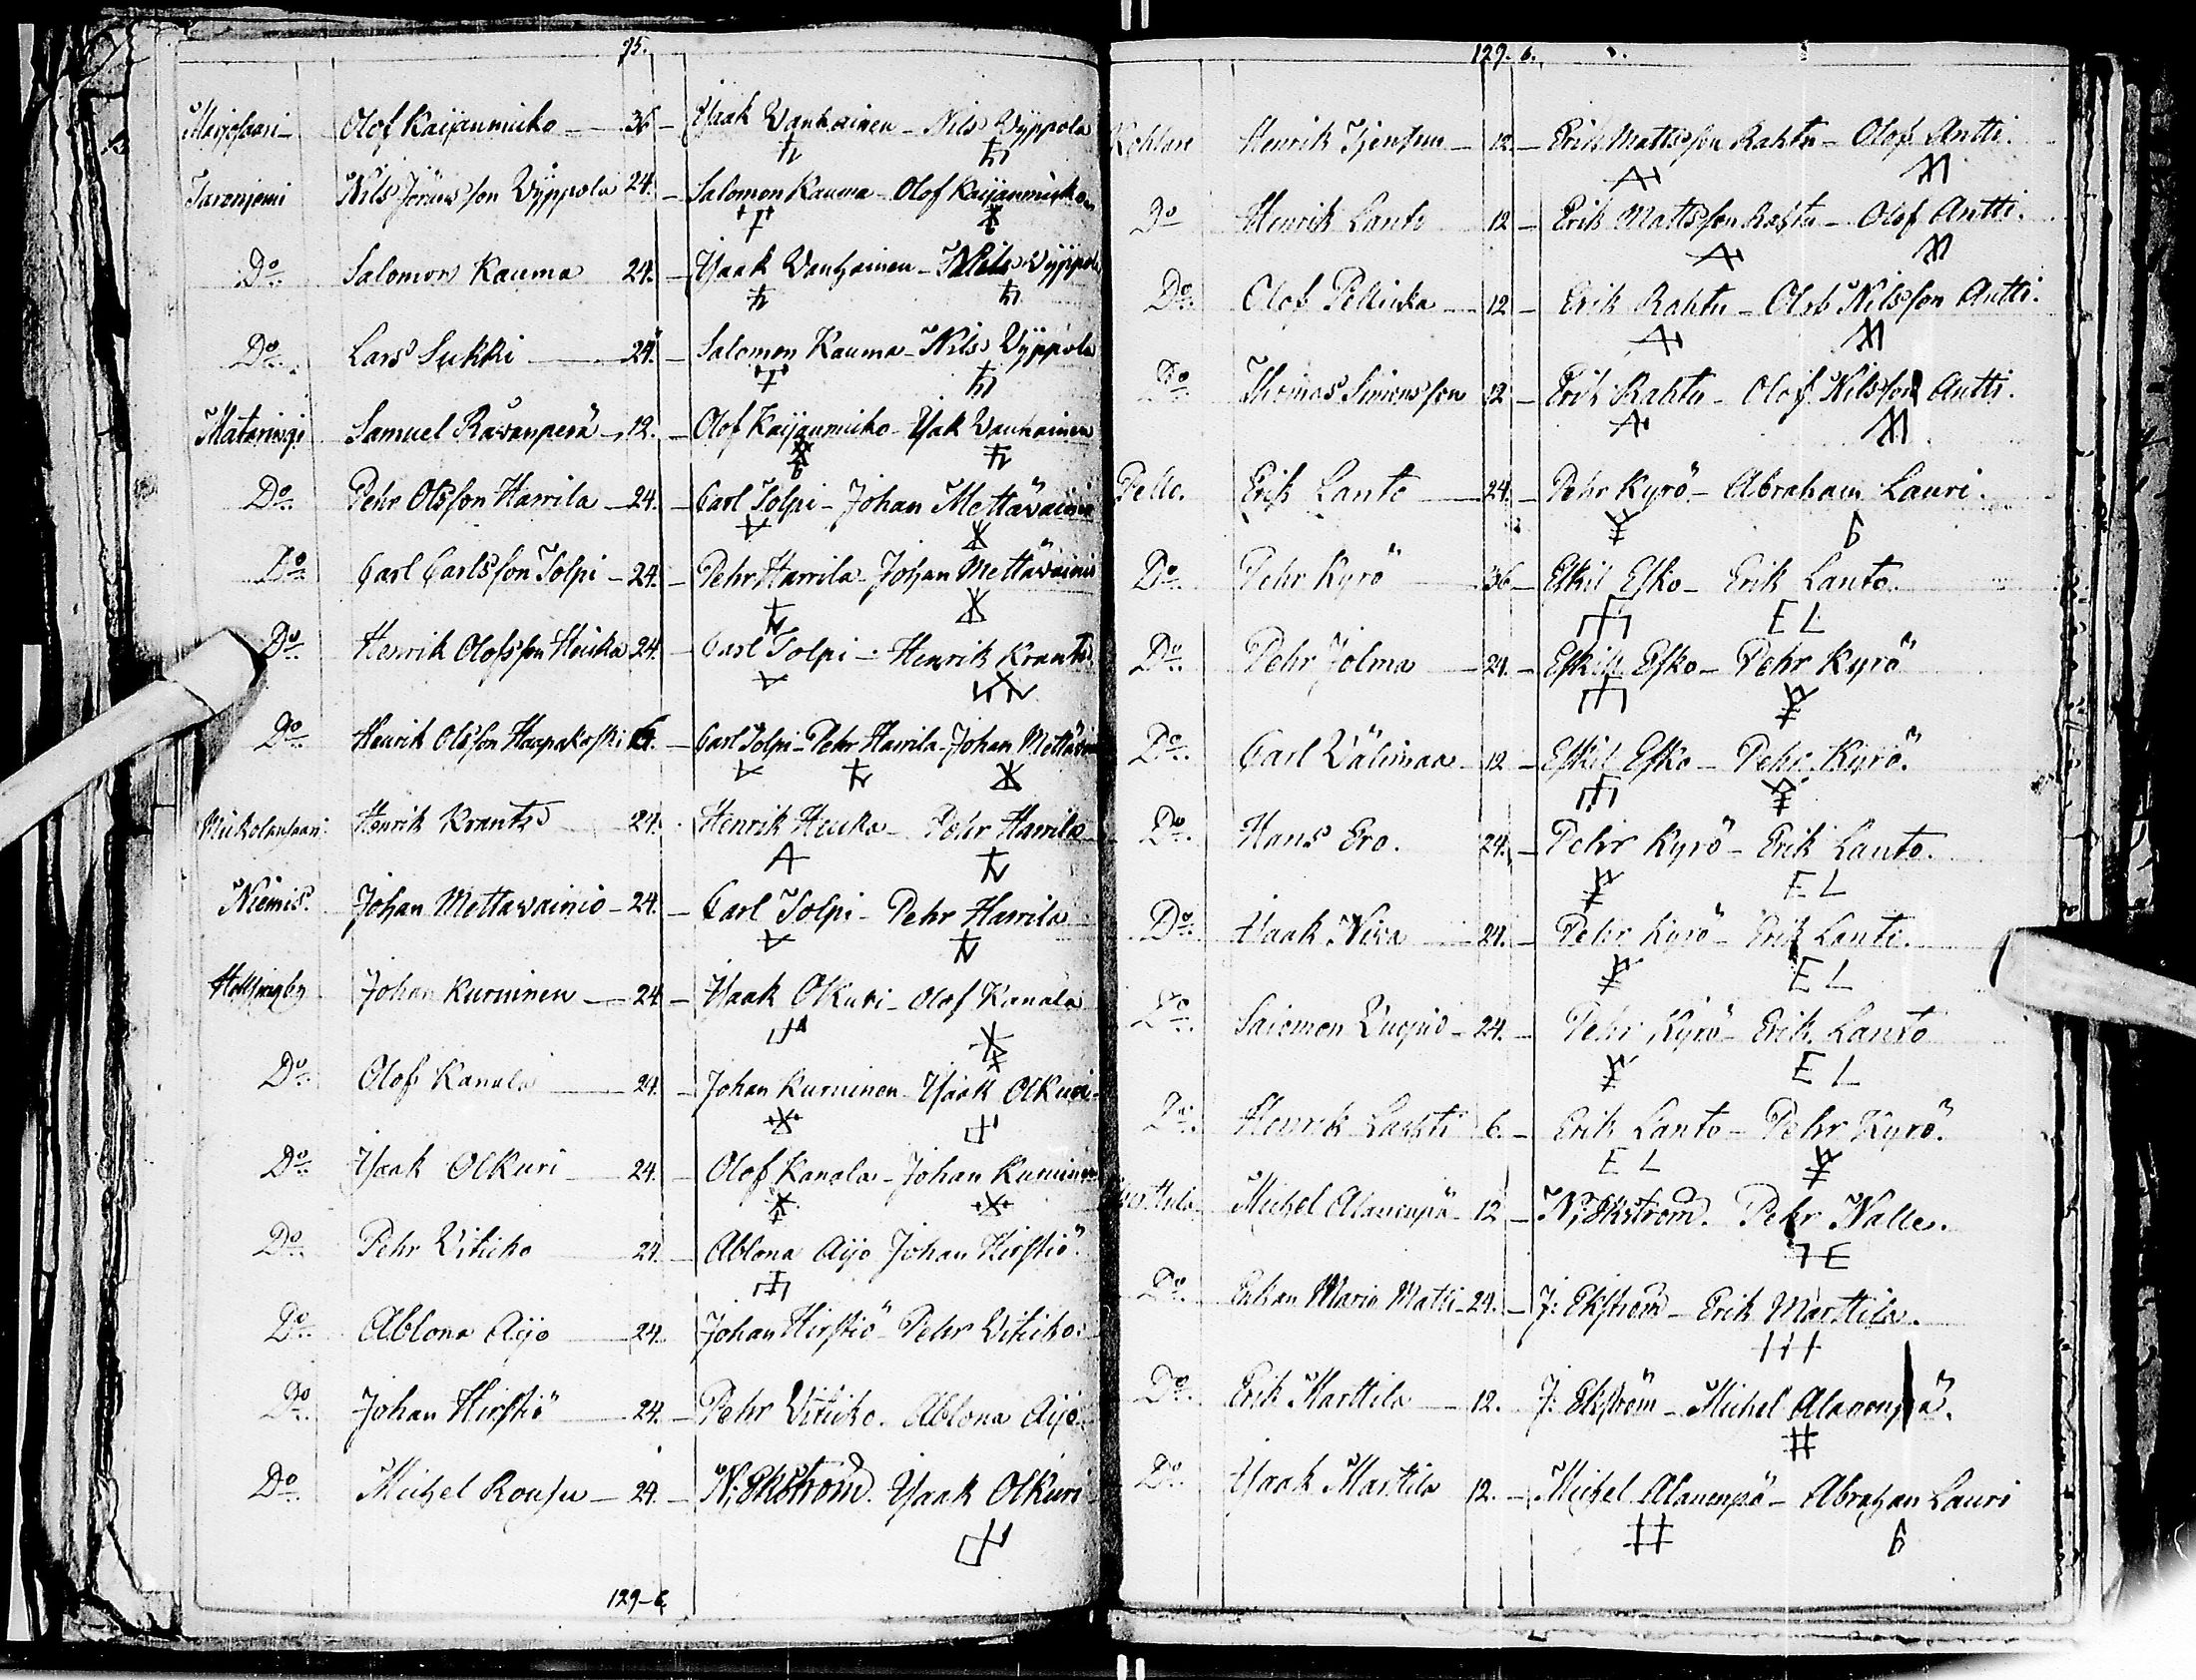 95.
Marjosaari Olof Kaijanmicko 36 Isaak Wanhainen - Nils Wyppola
Jaronjemi Nils Jönsson Wyppola 24. Salomon Kauma - Olof Kaijanmicko
Do Salomon Kauma 24. Isaak Wanhainen - Nils Wyppola
Do Lars Lukki 24. Salomon Kauma - Nils Wyppola
Mataringi Samuel Rawanperä 12. Olof Kaijanmicko - Isak Wanhainen
Do Pehr Olsson Harrila 24. Carl Tolpi - Johan Mettäwainio
Do Carl Carlsson Tolpi 24. Pehr Harrila - Johan Mettäwainio
Do Henrik Olofsson Heicka 24. Carl Tolpi - Henrik Krants
Do Henrik Olsson Haapakoski 6. Carl Tolpi - Pehr Harrila - Johan Mettäwainio
Mickolansaari Henrik Krants 24. Henrik Heicka - Pehr Harrila
Niemis. Johan Mettawainio 24. Carl Tolpi - Pehr Harrila
Helsingby Johan Kuruinen 24. Isaak Olkuri - Olof Kanala
Do Olof Kanala 24. Johan Kuruinen - Isaak Olkuri
Do Isaak Olkuri 24. Olof Kanala - Johan Kuruinen
Do Pehr Witicko 24. Ablona Aijo Johan Hirstiö
Do Ablona Aijo 24. Johan Hirstiö - Pehr Witicko
Do Johan Hirstiö 24. Pehr Witicko. Ablona Aijo
Do Michel Rousu 24. N: Ekström. Isaak Olkuri
129-6
129. 6.
Kohlare Henrik 12 Erik Mattsson Rahtu - Olof Antti.
Do Henrik Lanto 12 Erik Mattsson Rahtu - Olof Antti.
Do Olof Pellicka 12 Erik Rahtu - Olof Nilsson Antti.
Do Thomas Simonsson 12 Erik Rahtu - Olof Nilsson Antti.
Pello. Erik Lanto 24. Pehr Kyrö - Abraham Lauri.
Do Pehr Kyrö 36 Eskil Esko - Erik Lanto.
E L
Do Pehr Jolma 24. Eskil Esko - Pehr Kyrö
Do Carl Wälimaa 12 Eskil Esko - Pehr Kyrö.
Do Hans Ero. 24. Pehr Kyrö - Erik Lanto.
E L
Do Isaak Niva 24. Pehr Kyrö - Erik Lanto.
E L
Do Salomon 24. Pehr Kyrö - Erik Lanto
E L
Do Henrik Lachti 6. Erik Lanto - Pehr Kyrö.
E L
Marttila Michel Alanenpä 12 N: Ekström. Pehr Nalle.
Do Enkan Maria Matti 24. J: Ekström - Erik Marttila.
Do Erik Marttila 12. J: Ekström - Michel Alanenpä.
Do Isaak Marttila 12. Michel Alanenpä - Abraham Lauri